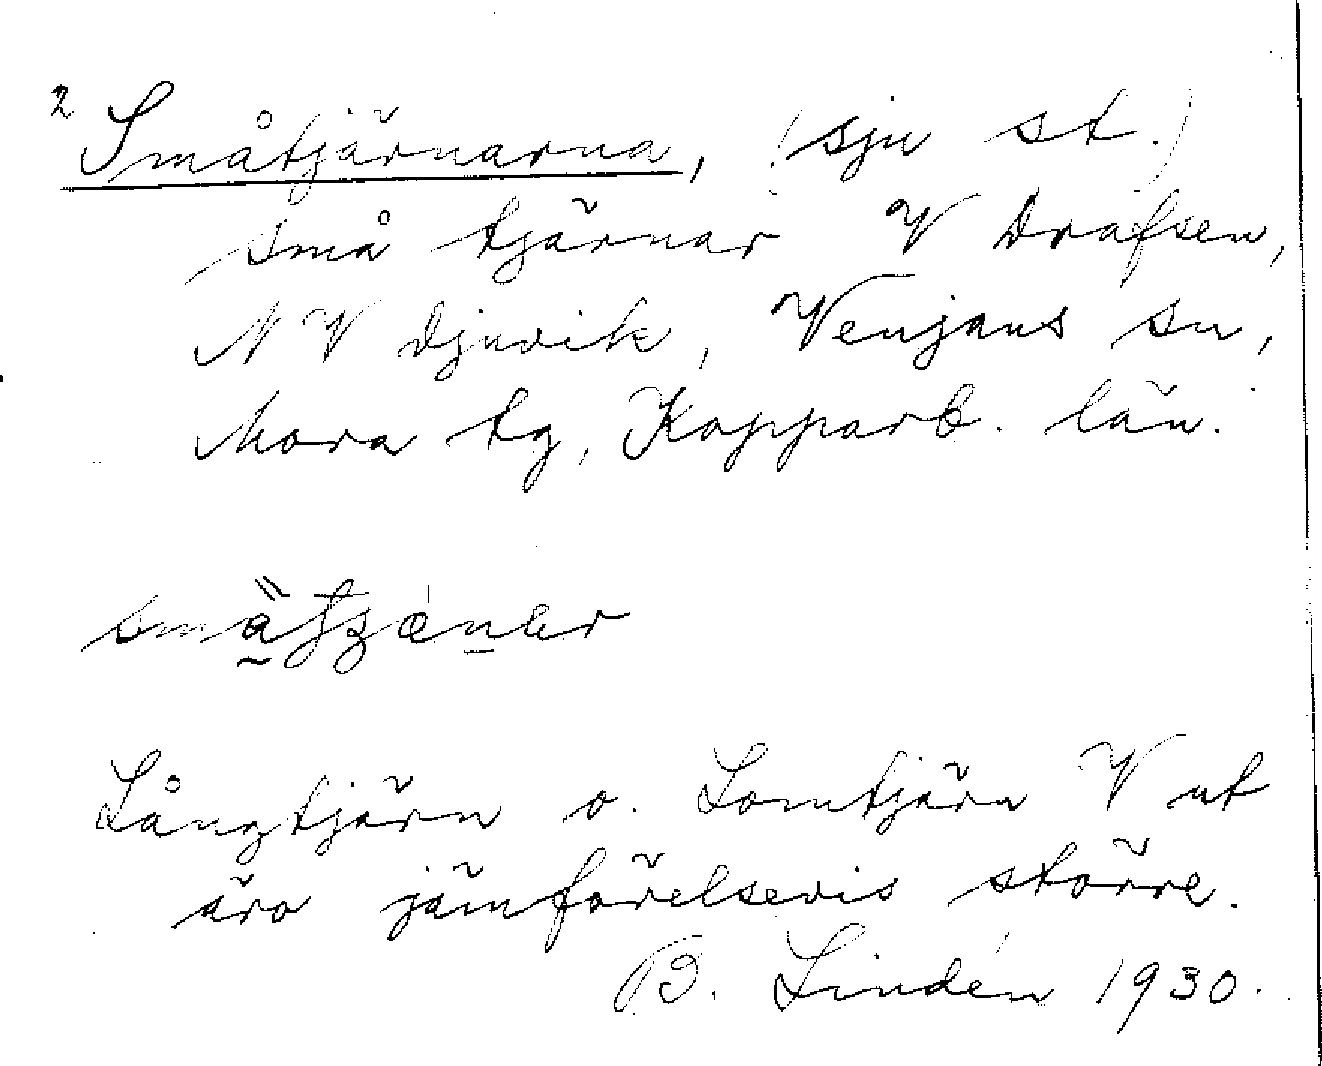 2 Småtjärnarna, (sju st.)
små tjärnar V Drafsen,
NV Djuvik, Venjans sn,
Mora tg, Kopparb. län.
Långtjärn o. Lomtjärn V ut
äro jämförelsevis större.
B. Lindén 1930.